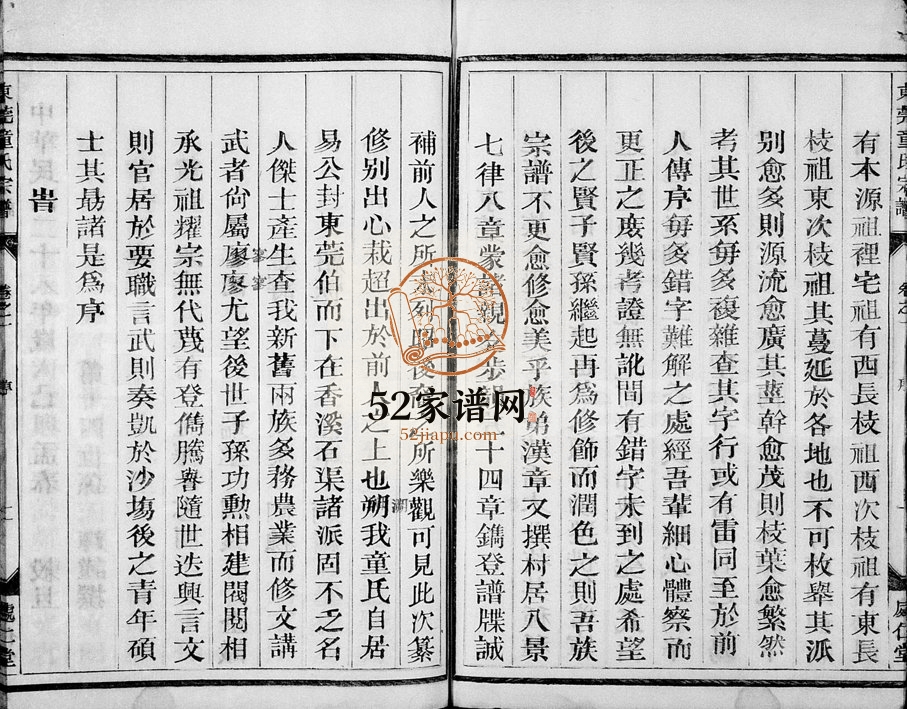 東莞童氏宗譜
卷之一
序
處仁堂
有本源祖裡宅祖有西長枝祖西次枝祖有東長
枝祖東次枝祖其蔓延於各地也不可枚舉其派
別愈多則源流愈廣其莖幹愈茂則枝葉愈繁然
考其世系每多複雜查其字行或有雷同至於前
人傳序每多錯字難解之處經吾輩細心體察而
更正之庶幾考證無訛間有錯字未到之處希望
後之賢子賢孫繼起再為修飾而潤色之則吾族
宗譜不更愈修愈美乎族弟漢章又撰村居八景
七律八章蒙諸親 十四章鐫登譜牒誠
補前人之所未列 後 所樂觀可見此次纂
修別出心栽超出於前人之上也朔我童氏自居
溯
易公封東莞伯而下在香溪石渠諸派固不乏名
人傑士產生查我新舊兩族多務農業而修文講
武者尙屬廖廖尤望後世子孫功勲相建閥閱相
寥寥
承光祖耀宗無代蔑有登儁騰譽隨世迭興言文
則官居於要職言武則奏凱於沙塲後之青年碩
士其勗諸是為序
旹
東莞童氏宗譜
卷之一
序
處仁堂
52家谱网
52jiapu.com